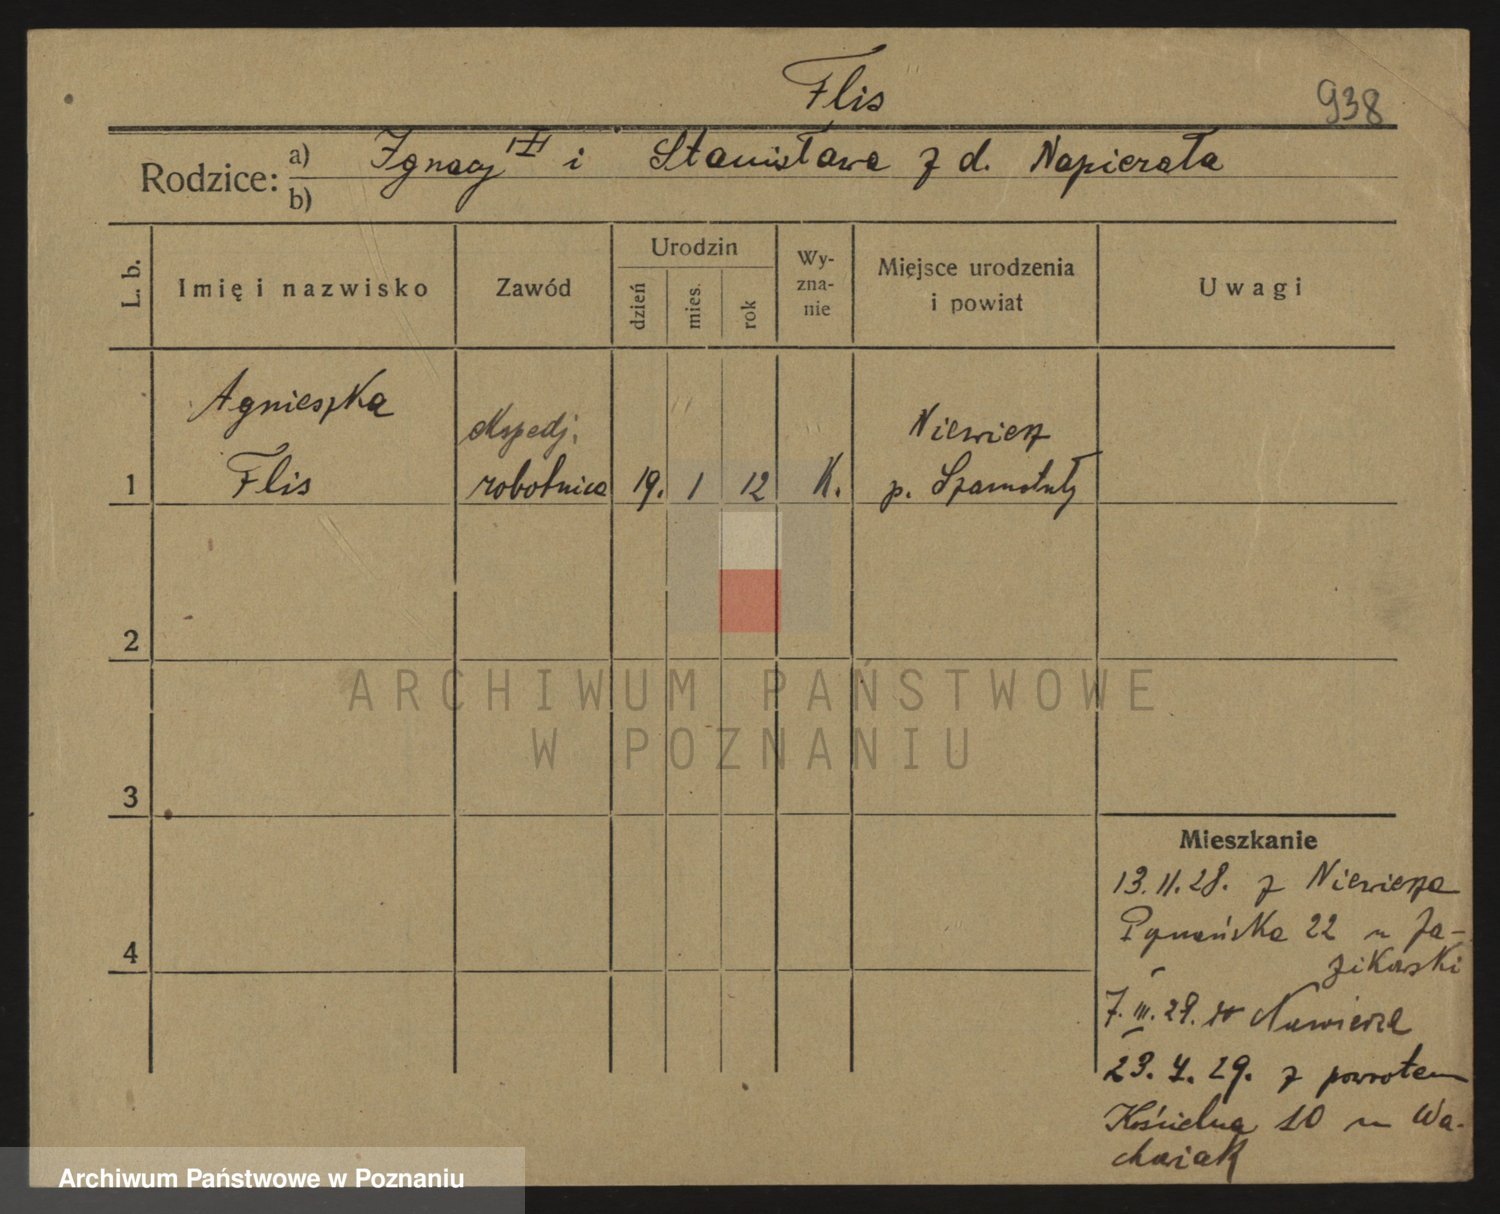 Flis
938
Rodzice: a) Ignacy III i Stanisława z d. Napierała
b)
L. b.
Imię i nazwisko
Zawód
Urodzin
dzień
mies.
rok
Wy-
zna-
nie
Miejsce urodzenia
i powiat
Uwagi
Agnieszka
Flis
ekspedj.
robotnica
19. 1 12
K.
Niewierz
p. Szamotuły
1
2
3
4
ARCHIWUM PAŃSTWOWE
W POZNANIU
Mieszkanie
13. 11. 28. z Niewierza
Poznańska 22 u
7. III. 29. do
23. 4. 29. z powrotem
Kościelna 10 u Wa-
chowiak
Archiwum Państwowe w Poznaniu